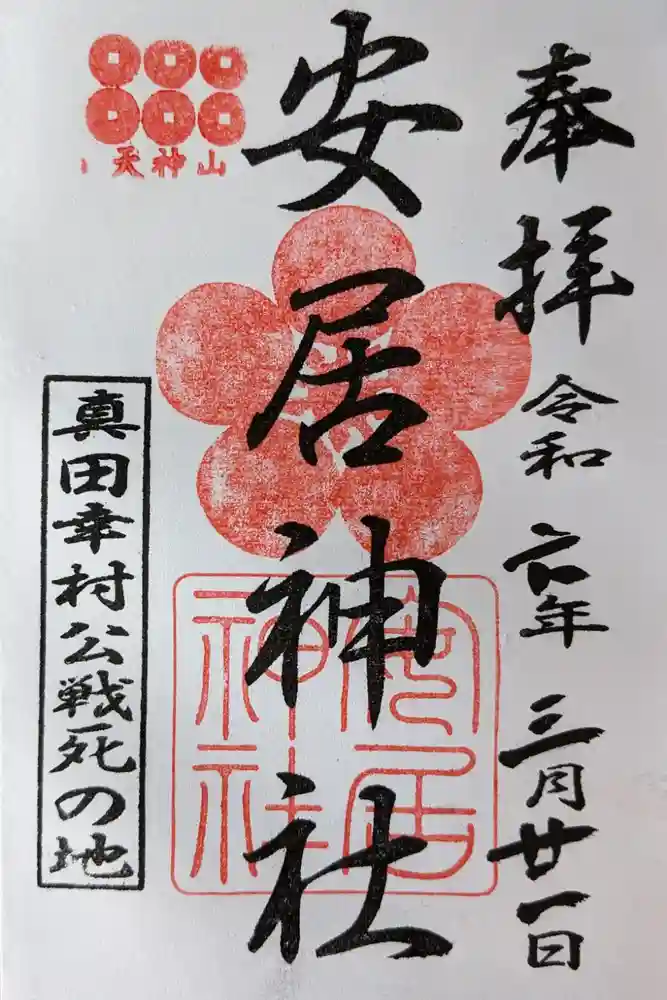 奉拝 令和六年 三月廿一日
安居神社
天神山
真田幸村公戦死の地
安居
神社